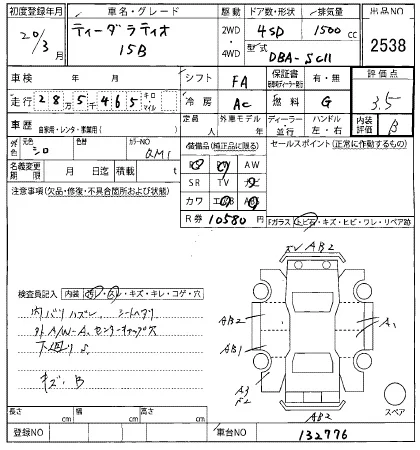 初度登録年月 車名・グレード 駆動 ドア数・形状 排気量 出品NO
20/3 ティーダラティオ 15B 2WD・4WD 4SD 1500 cc 2538
型式 DBA-SC11
車検 年 月 シフト FA 保証書 有・無 評価点 3.5
走行 28万5千465 キロ・マイル 冷房 AC 燃料 G
車歴 自家用・レンタ・事業用( ) 定員 人 外車モデル 年 ディーラー・並行 ハンドル 左・右 内装評価 B
外色 元色 シロ 色替 カラーNO QM1 装備品(純正品に限る) セールスポイント(正常に作動するもの)
名義変更期限 月 日迄 積載 t AW
SR TV ナビ
注意事項(欠品・修復・不具合箇所および状態) カワ エアB ABS
R券 10580 円 Fガラス トビ石・キズ・ヒビ・ワレ・リペア跡
AB2
検査員記入 内装 汚レ・スレ・キズ・キレ・コゲ・穴
内バリハズレ、シートヘタリ AB2 A1
外A/W-A、センターキャップ欠 AB1
下回りS A3
キズ、B AB2
スペア
長さ cm 幅 cm 高さ cm
登録NO 車台NO 132776